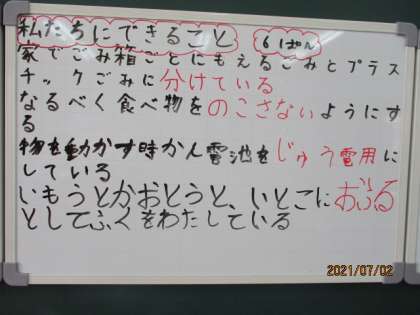 私たちにできること 6ぱん
家でごみ箱ごとにもえるごみとプラス
チックごみに分けている
なるべく食べ物をのこさないようにす
る
物を動かす時かん電池をじゅう電用に
している
いもうとかおとうと、いとこにおふる
としてふくをわたしている
2021/07/02